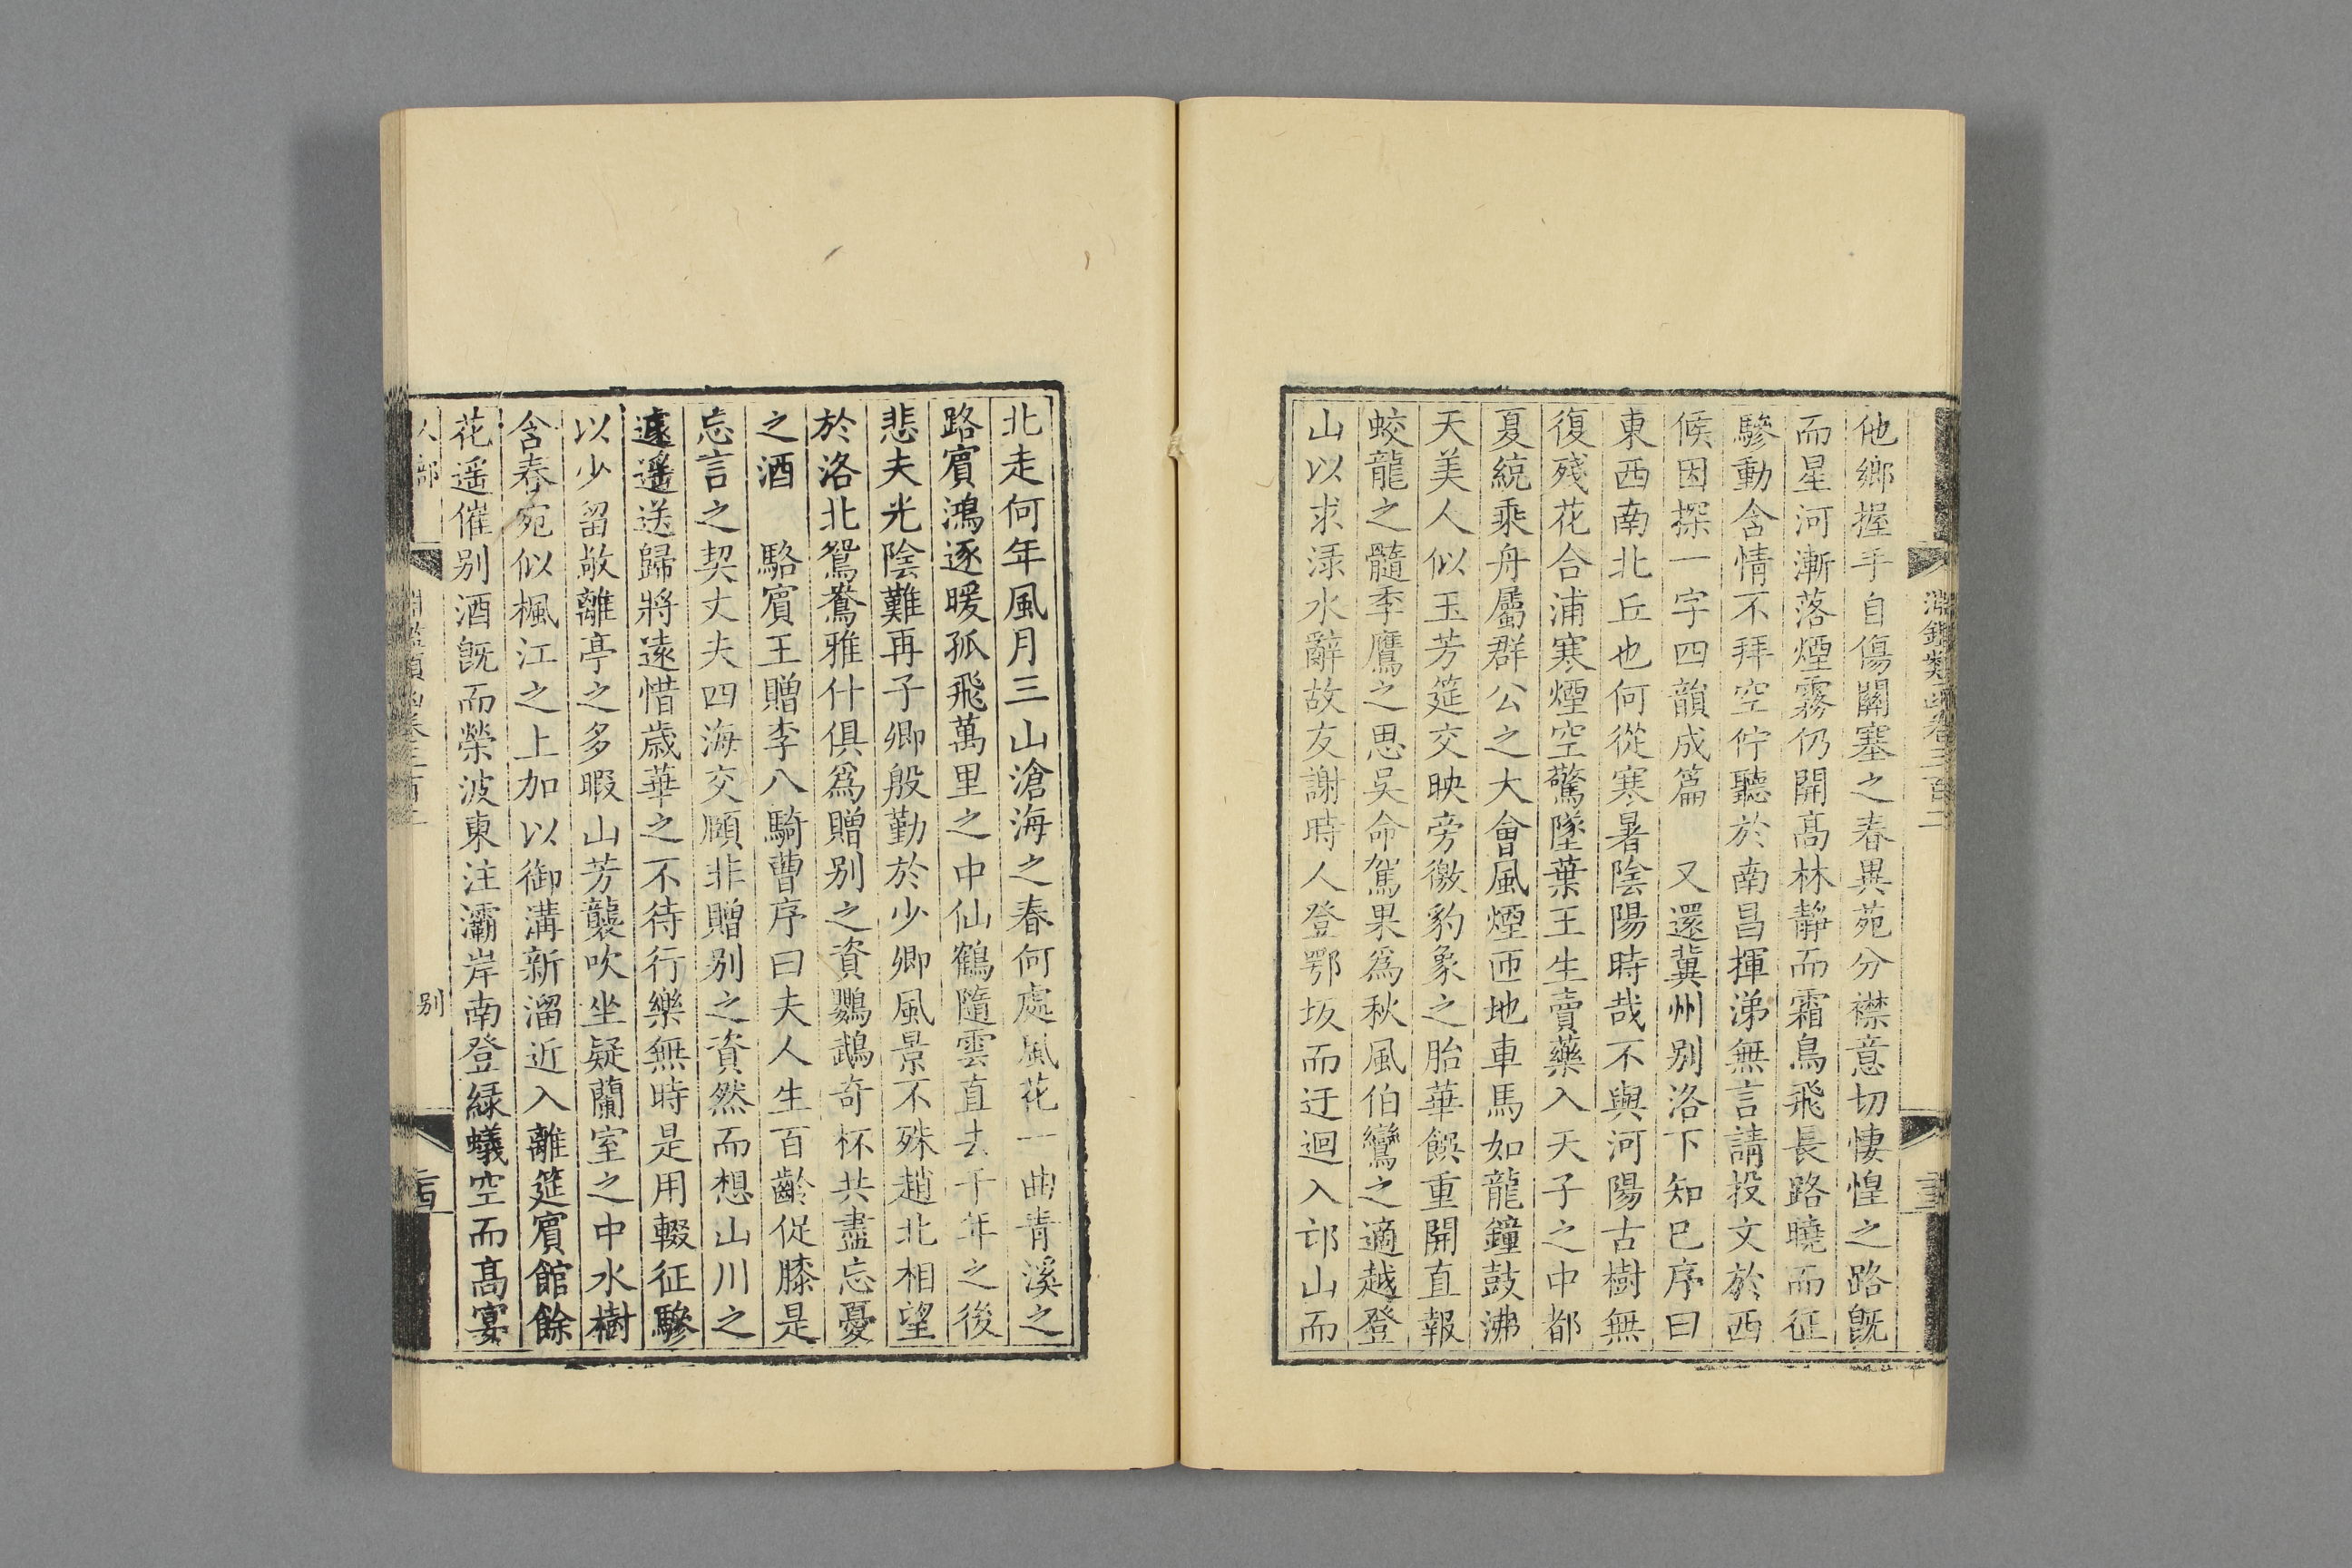 淵鑑類函卷三百二
他鄉握手自傷關塞之春異苑分襟意切悽惶之路旣
而星河漸落煙霧仍開髙林靜而霜鳥飛長路曉而征
驂動含情不拜空佇聽於南昌揮涕無言請投文於西
候因探一字四韻成篇　又還冀州别洛下知己序曰
東西南北丘也何從寒暑陰陽時哉不與河陽古樹無
復殘花合浦寒煙空驚墜葉王生賣藥入天子之中都
夏統乘舟屬群公之大會風煙匝地車馬如龍鐘鼓沸
天美人似玉芳筵交映旁徵豹象之胎華饌重開直報
蛟龍之髓季鷹之思吳命駕果爲秋風伯鸞之適越登
山以求渌水辭故友謝時人登鄂坂而迂迴入邙山而
北走何年風月三山滄海之春何處風花一曲青溪之
路賓鴻逐暖孤飛萬里之中仙鶴隨雲直去千年之後
悲夫光陰難再子卿殷勤於少卿風景不殊趙北相望
於洛北鴛鴦雅什俱爲贈别之資鸚鵡奇杯共盡忘憂
之酒　駱賓王贈李八騎曹序曰夫人生百齡促膝是
忘言之契丈夫四海交頤非贈别之資然而想山川之
遠遙送歸將遠惜歲華之不待行樂無時是用輟征驂
以少留敞離亭之多暇山芳襲吹坐疑蘭室之中水樹
含春宛似楓江之上加以御溝新溜近入離筵賓館餘
花遥催别酒旣而榮波東注灞岸南登緑蟻空而髙宴
人部
淵鑑類函卷三百二
别